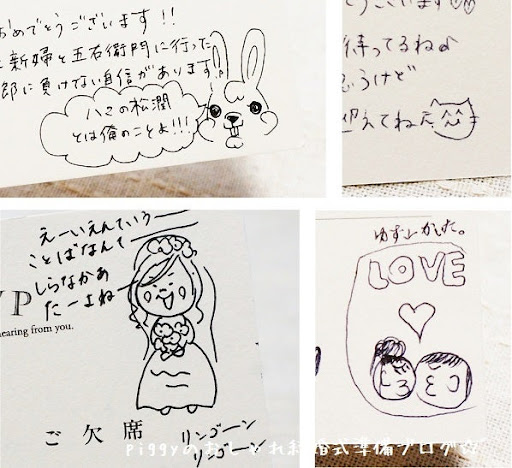 おめでとうございます!!
新婦と五右衛門に行った
郎に負けない自信があります!!
ハこの松潤
とは俺のことよ!!!
うございます
待ってるね♪
うけど
迎えてねた
えーいえんていう
ことばなんて
しらなかあ
たーよね
VP
hearing from you.
ご欠席
リンゴーン
リンゴーン
ゆずしかした。
LOVE
Piggyのおしゃれ結婚式準備ブログ